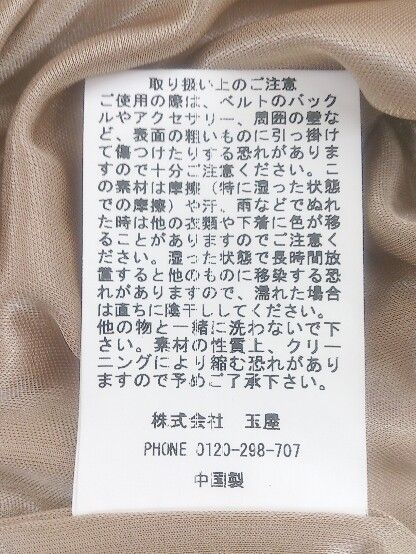 取り扱い上のご注意
ご使用の際は、ベルトのバック
ルやアクセサリー、周囲の壁な
ど、表面の粗いものに引っ掛け
て傷つけたりする恐れがありま
すので十分ご注意ください。こ
の素材は摩擦（特に湿った状態
での摩擦）や汗、雨などでぬれ
た時は他の衣類や下着に色が移
ることがありますのでご注意く
ださい。湿った状態で長時間放
置すると他のものに移染する恐
れがありますので、濡れた場合
は直ちに陰干ししてください。
他の物と一緒に洗わないで下
さい。素材の性質上、クリー
ニングにより縮む恐れがあり
ますので予めご了承下さい。
株式会社 玉屋
PHONE 0120-298-707
中国製